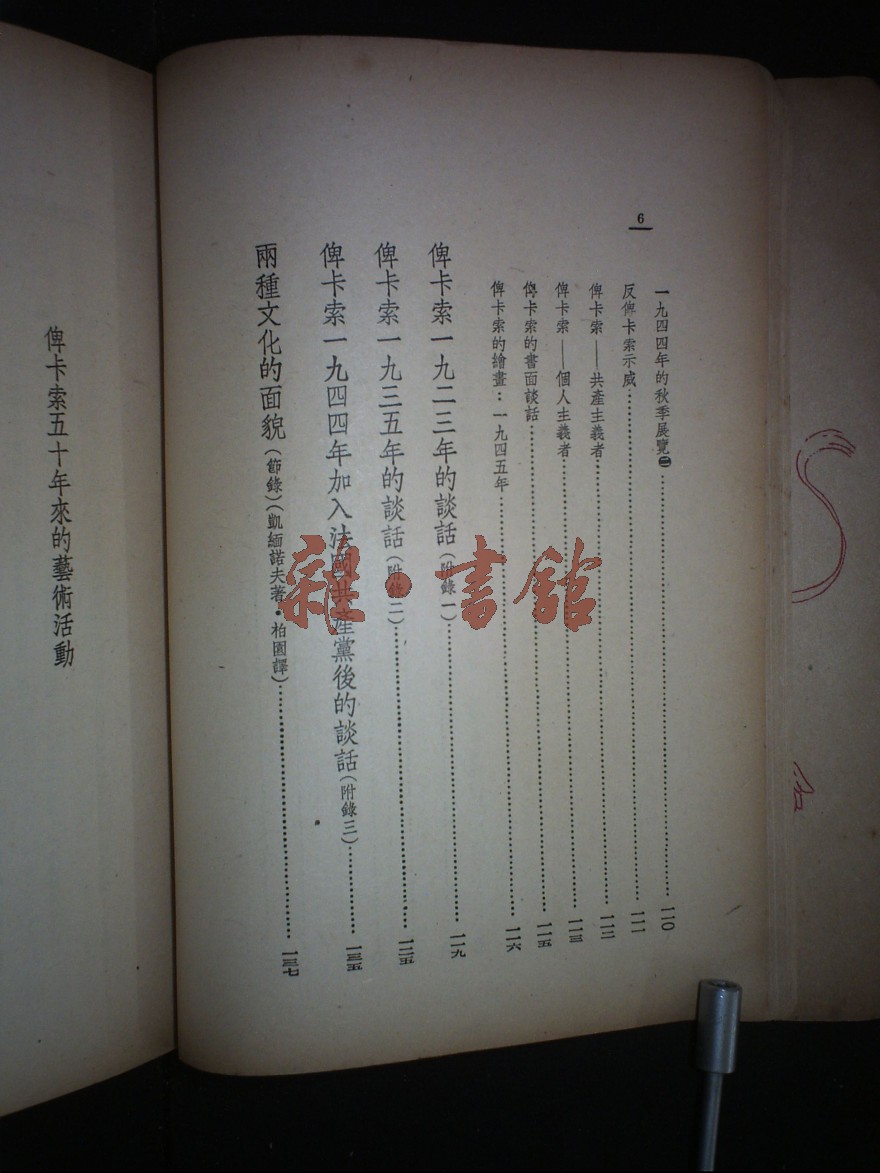 6
一九四四年的秋季展覽㊁……一一〇
反俾卡索示威……一一一
俾卡索——共產主義者……一一二
俾卡索——個人主義者……一一三
俾卡索的書面談話……一一五
俾卡索的繪畫：一九四五年……一一六
俾卡索一九二三年的談話（附錄一）……一一九
俾卡索一九三五年的談話（附錄二）……一二五
俾卡索一九四四年加入法國共產黨後的談話（附錄三）……一三五
兩種文化的面貌（節錄）（凱緬諾夫著・柏園譯）……一三七
俾卡索五十年來的藝術活動
雜・書館